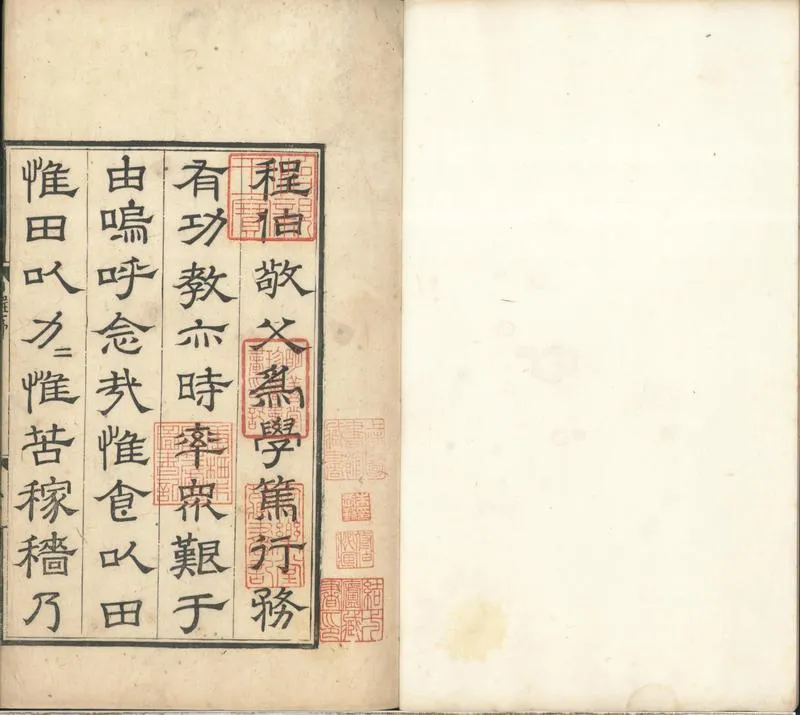 程伯敬父為學篤行務
有功教亦時率眾艱于
由嗚呼念㢤惟食㠯田
惟田㠯力〻惟苦稼穡乃